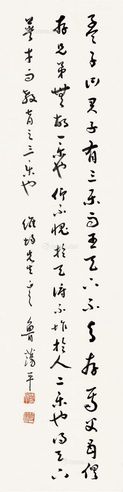 孟子曰君子有三樂而王天下不與存焉父母俱
存兄弟無故一樂也仰不愧於天俯不怍於人二樂也得天下
英才而教育之三樂也 先生正之 魯蕩平